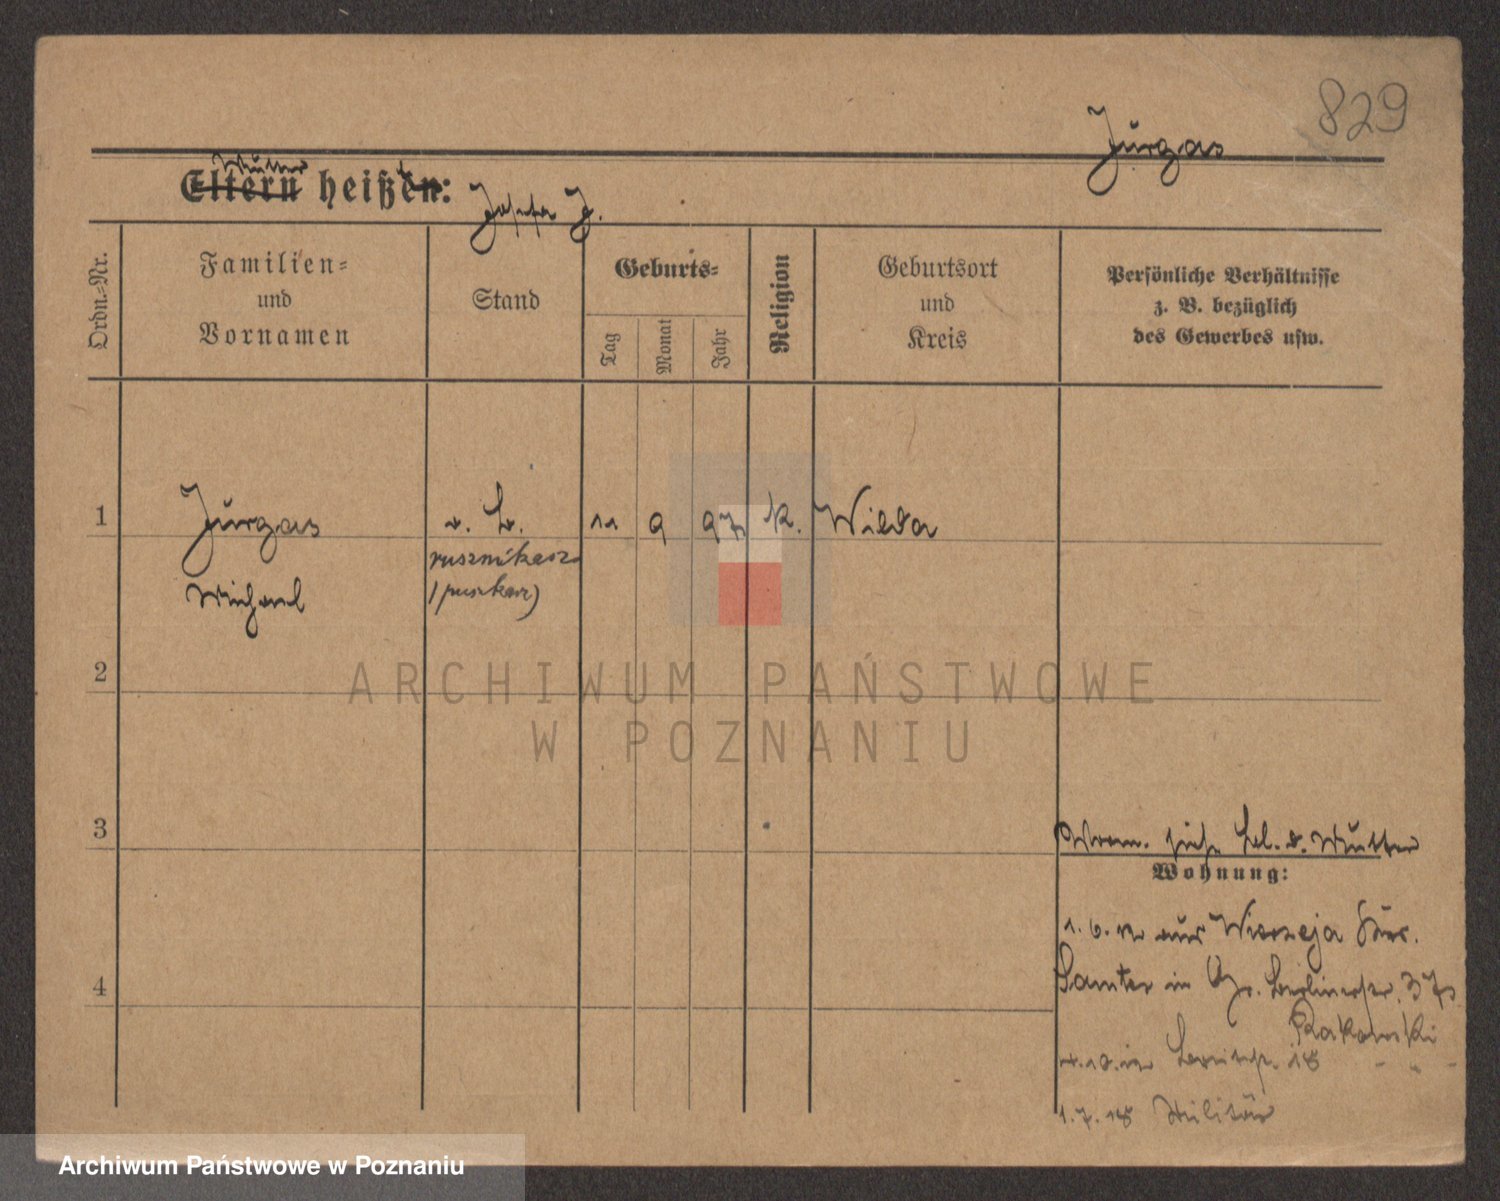 829
Jurgas
Mutter
Eltern heißen:
Josefa J.
Ordn.-Nr.
Familien-
und
Vornamen
Stand
Geburts-
Tag
Monat
Jahr
Religion
Geburtsort
und
Kreis
Persönliche Verhältnisse
z. B. bezüglich
des Gewerbes usw.
1
Jurgas
Michael
v. B.
rusznikarz
(puszkarz)
11
9
97
K.
Wilda
2
3
4
siehe Bl. d. Mutter
Wohnung:
aus Wierzeja Kr.
Samter in Gr. Berlinerstr. 37
Rakowski
18
1.7.18 Militär
ARCHIWUM PAŃSTWOWE
W POZNANIU
Archiwum Państwowe w Poznaniu